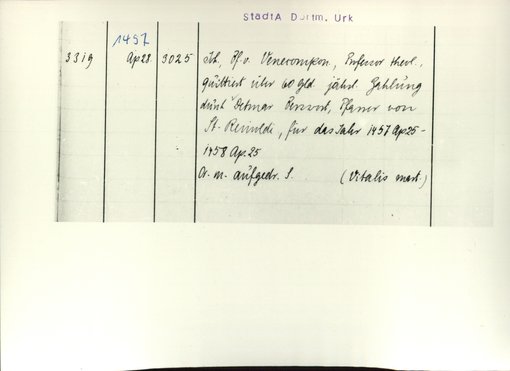 StadtA Dortm. Urk
1457
3319 Ap 28. 3025 Joh, Pf. v. , Professor theol.,
quittiert über 60 Gld jährl. Zahlung
durch Detmar , Pfarrer von
St. Reinoldi, für das Jahr 1457 Ap 25-
1458 Ap. 25
Or. m. aufgedr. S. (Vitalis mart.)